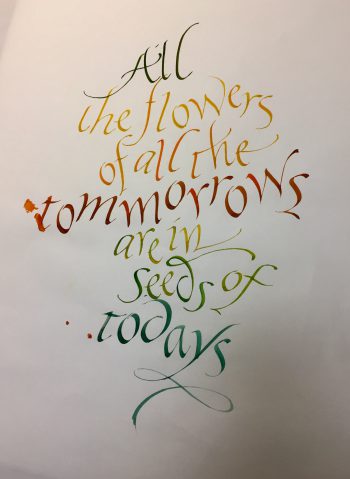 All
the flowers
of all the
tommorrows
are in
seeds of
todays